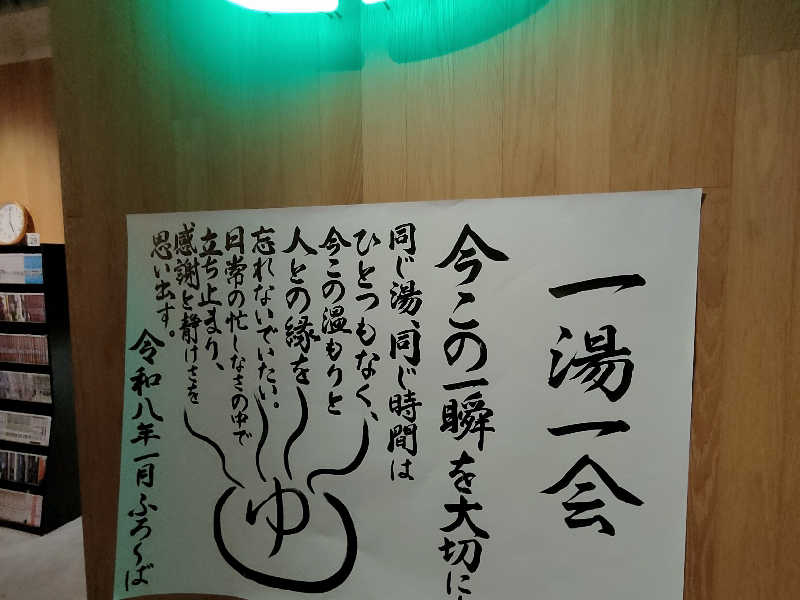 一湯一会
今この一瞬を大切に
同じ湯、同じ時間は
ひとつもなく、
今この温もりと
人との縁を
忘れないでいたい。
日常の忙しなさの中で
立ち止まり、
感謝と静けさを
思い出す。
令和八年一月ふろくば
ゆ